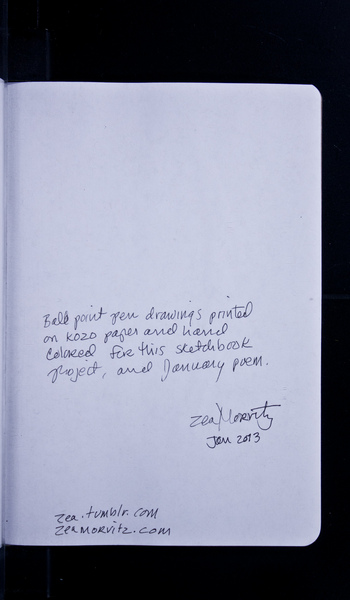 Ball point pen drawings printed
on kozo paper and hand
colored for this sketchbook
project, and January poem.
Zea Morvitz
Jan 2013
zea.tumblr.com
zeamorvitz.com